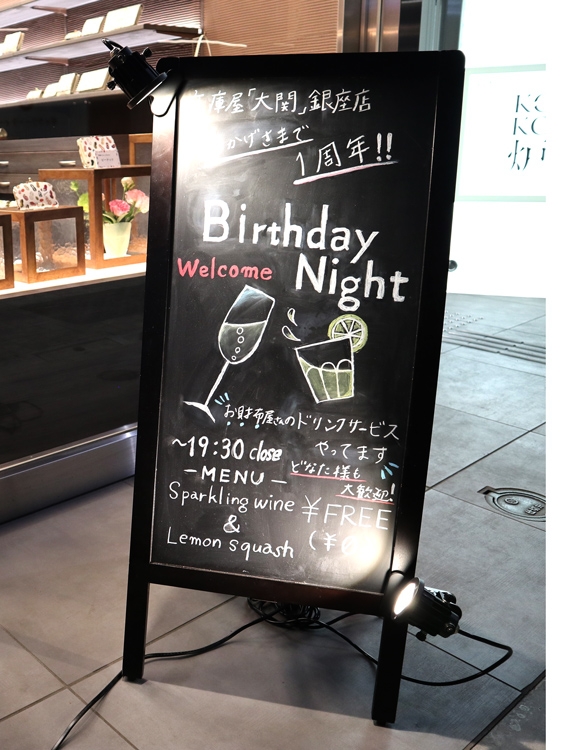 庫屋「大関」銀座店
かげさまで
1周年!!
Birthday
Welcome Night
お財布屋さんのドリンクサービス
やってます
~19:30 close
どなた様も
大歓迎!
－MENU－
Sparkling wine
&
Lemon squash
¥FREE
(¥